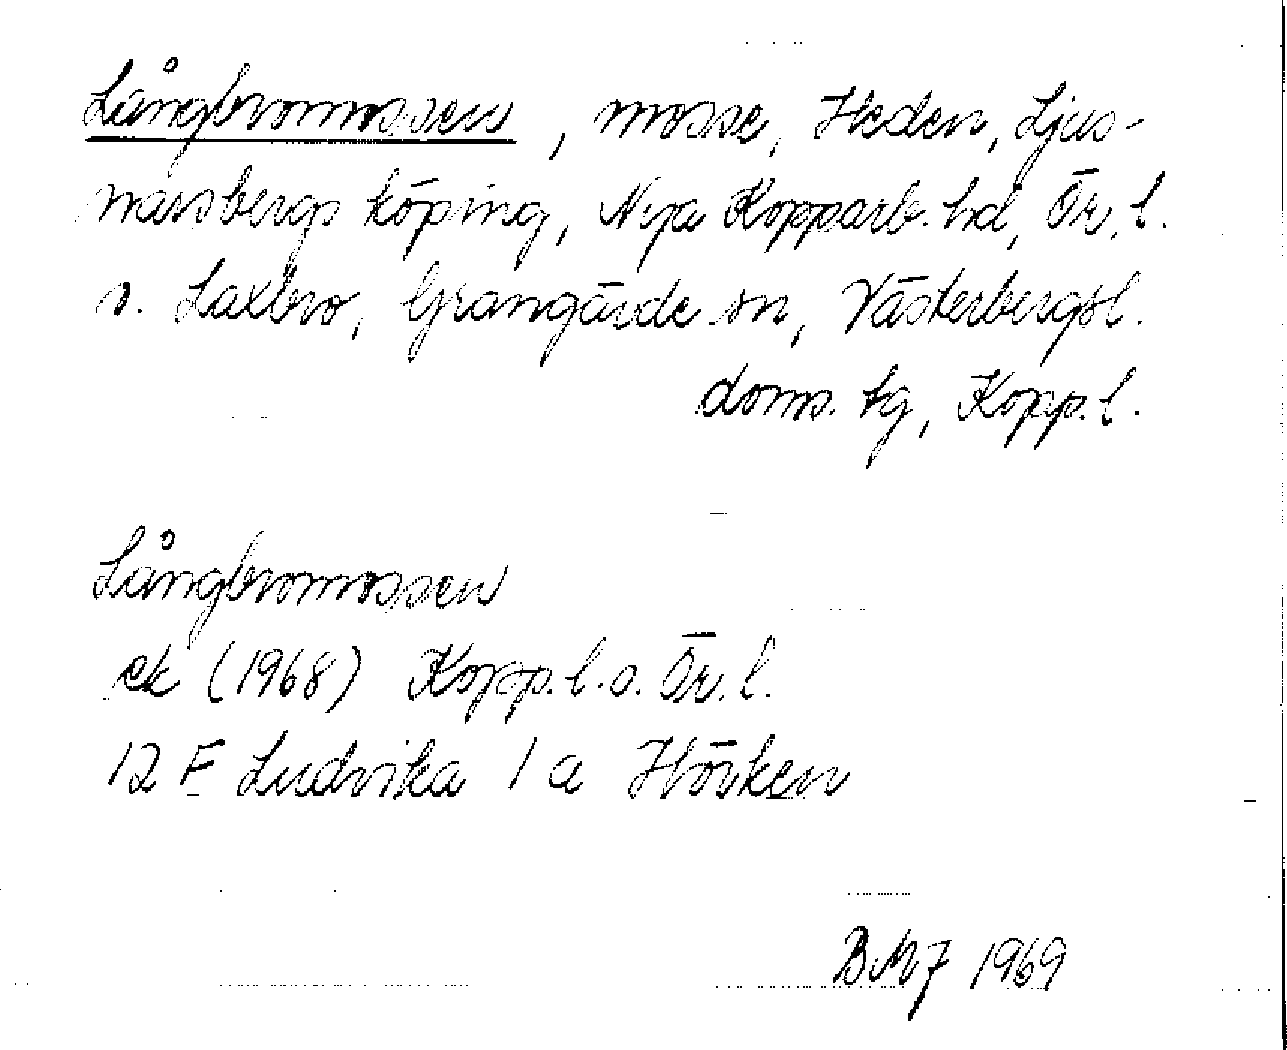 Långbromossen, mosse, Heden, Ljus-
narsbergs köping, Nya Kopparb. hd, Ör. l.
o. Laxbro, Grangärde sn, Västerbergsl.
doms. tg, Kopp. l.
Långbromossen
ek (1968) Kopp. l. o. Ör. l.
12 F Ludvika 1 a Hörken
BMJ 1969